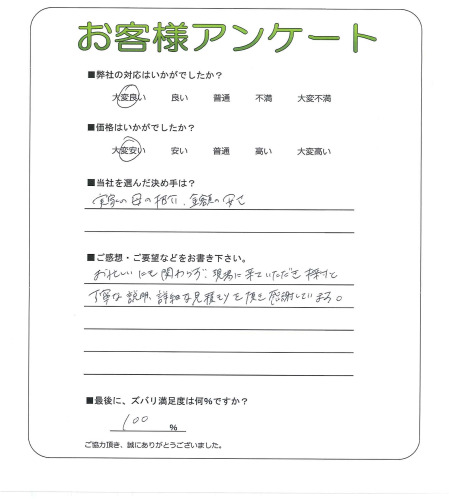 お客様アンケート
■弊社の対応はいかがでしたか？
大変良い 良い 普通 不満 大変不満
■価格はいかがでしたか？
大変安い 安い 普通 高い 大変高い
■当社を選んだ決め手は？
実家の母の紹介、金額の安さ
■ご感想・ご要望などをお書き下さい。
お忙しいにも関わらず、現場に来ていただき
丁寧な説明、詳細な見積もりを頂き感謝しています。
■最後に、ズバリ満足度は何％ですか？
100 ％
ご協力頂き、誠にありがとうございました。